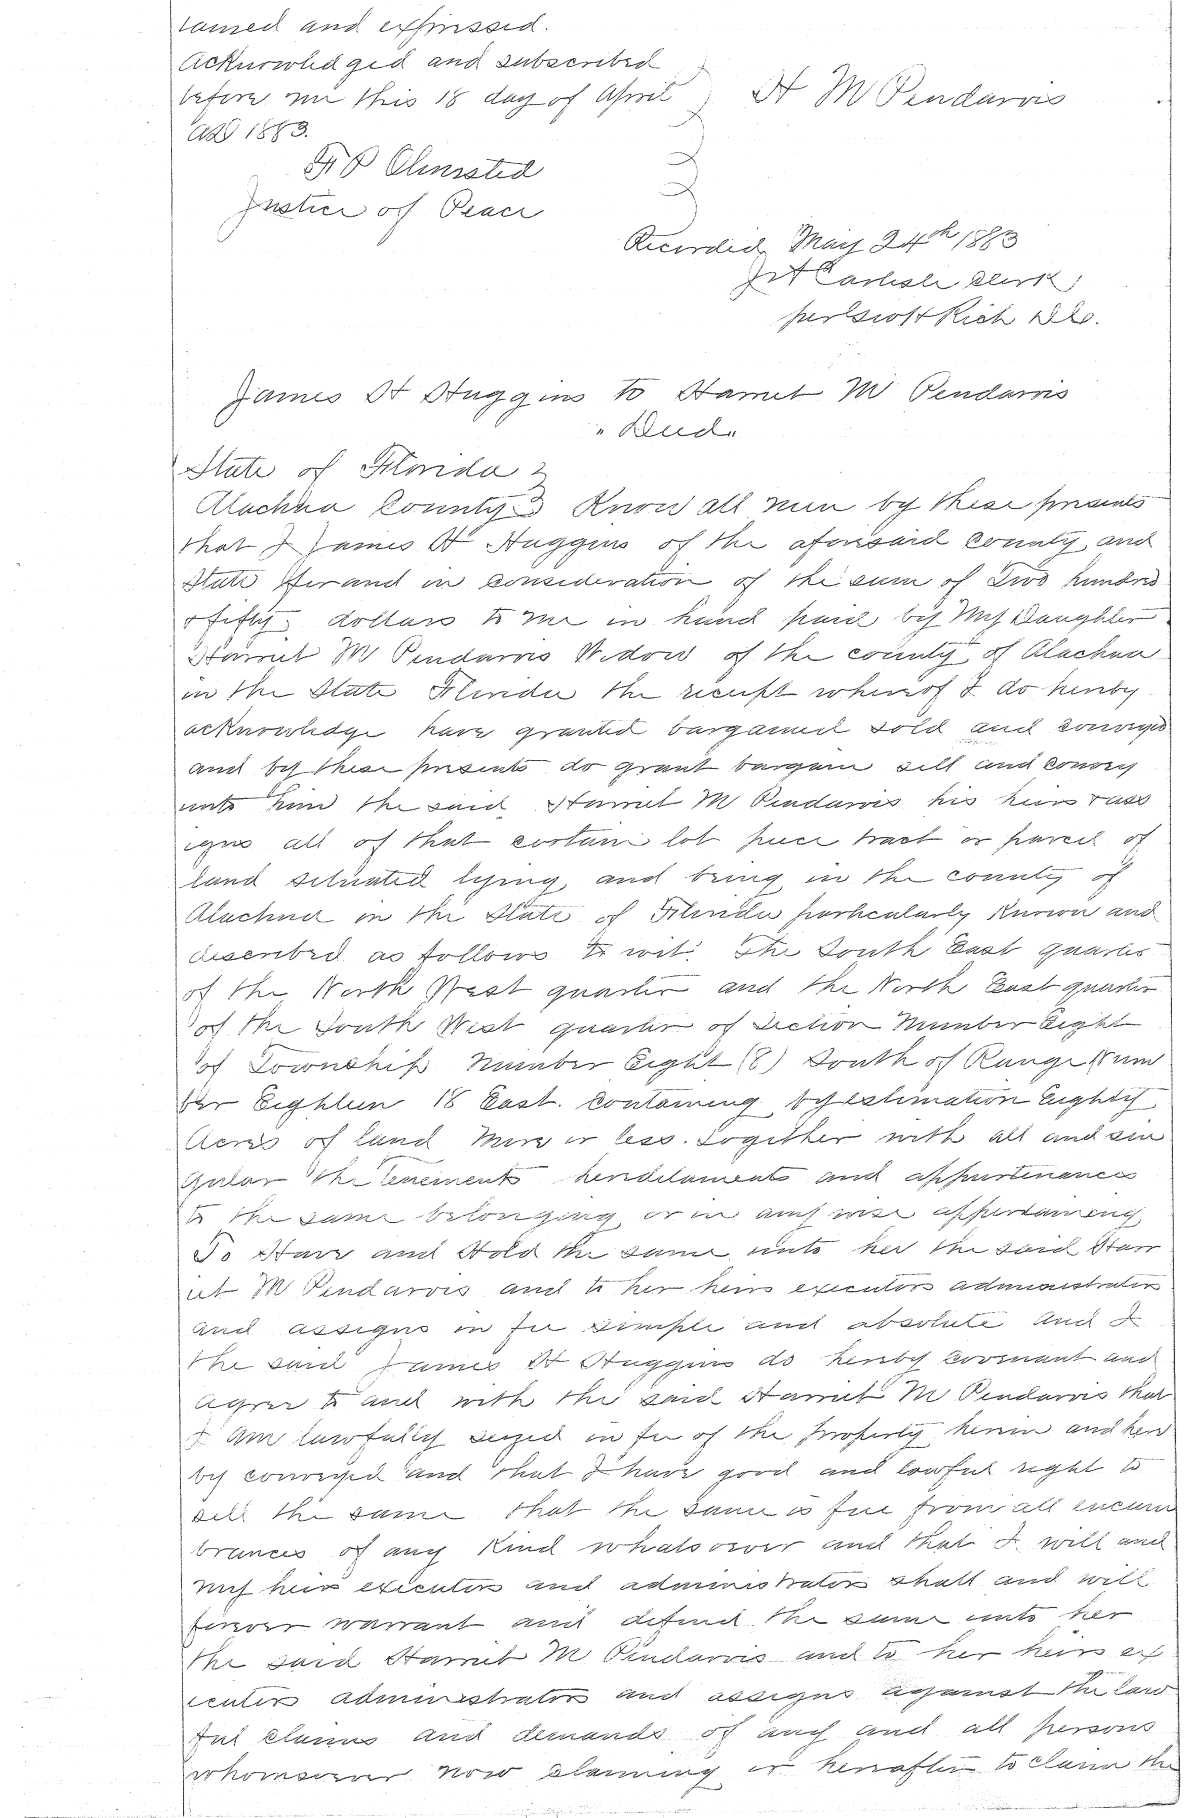 tained and expressed.
Acknowledged and subscribed
before me this 18 day of April } H M Pendarvis
AD 1883.
F P Olmsted
Justice of Peace
Recorded May 24th 1883
J A Carlisle Clerk
per Rich D.C.
James H Huggins to Harriet M Pendarvis
"Deed"
State of Florida }
Alachua County } Know all men by these presents
that I James H Huggins of the aforesaid county and
State for and in consideration of the sum of Two hundred
& fifty dollars to me in hand paid by My Daughter
Harriet M Pendarvis Widow of the county of Alachua
in the State Florida the receipt whereof I do hereby
acknowledge have granted bargained sold and conveyed
and by these presents do grant bargain sell and convey
unto him the said Harriet M Pendarvis his heirs & ass
igns all of that certain lot piece tract or parcel of
land situated lying and being in the county of
Alachua in the State of Florida particularly known and
described as follows to wit: The South East quarter
of the North West quarter and the North East quarter
of the South West quarter of Section Number Eight
of Township Number Eight (8) South of Range Num
ber Eighteen 18 East. Containing by estimation Eighty
Acres of land More or less. Together with all and sin
gular the tenements hereditaments and appurtenances
to the same belonging or in any wise appertaining
To Have and Hold the same unto her the said Harr
iet M Pendarvis and to her heirs executors administrators
and assigns in fee simple and absolute And I
the said James H Huggins do hereby covenant and
agree to and with the said Harriet M Pendarvis that
I am lawfully seized in fee of the property herein and here
by conveyed and that I have good and lawful right to
sell the same that the same is free from all encum
brances of any Kind whatsoever and that I will and
my heirs executors and administrators shall and will
forever warrant and defend the same unto her
the said Harriet M Pendarvis and to her heirs ex
ecutors administrators and assigns against the law
ful claims and demands of any and all persons
whomsoever now claiming or hereafter to claim the